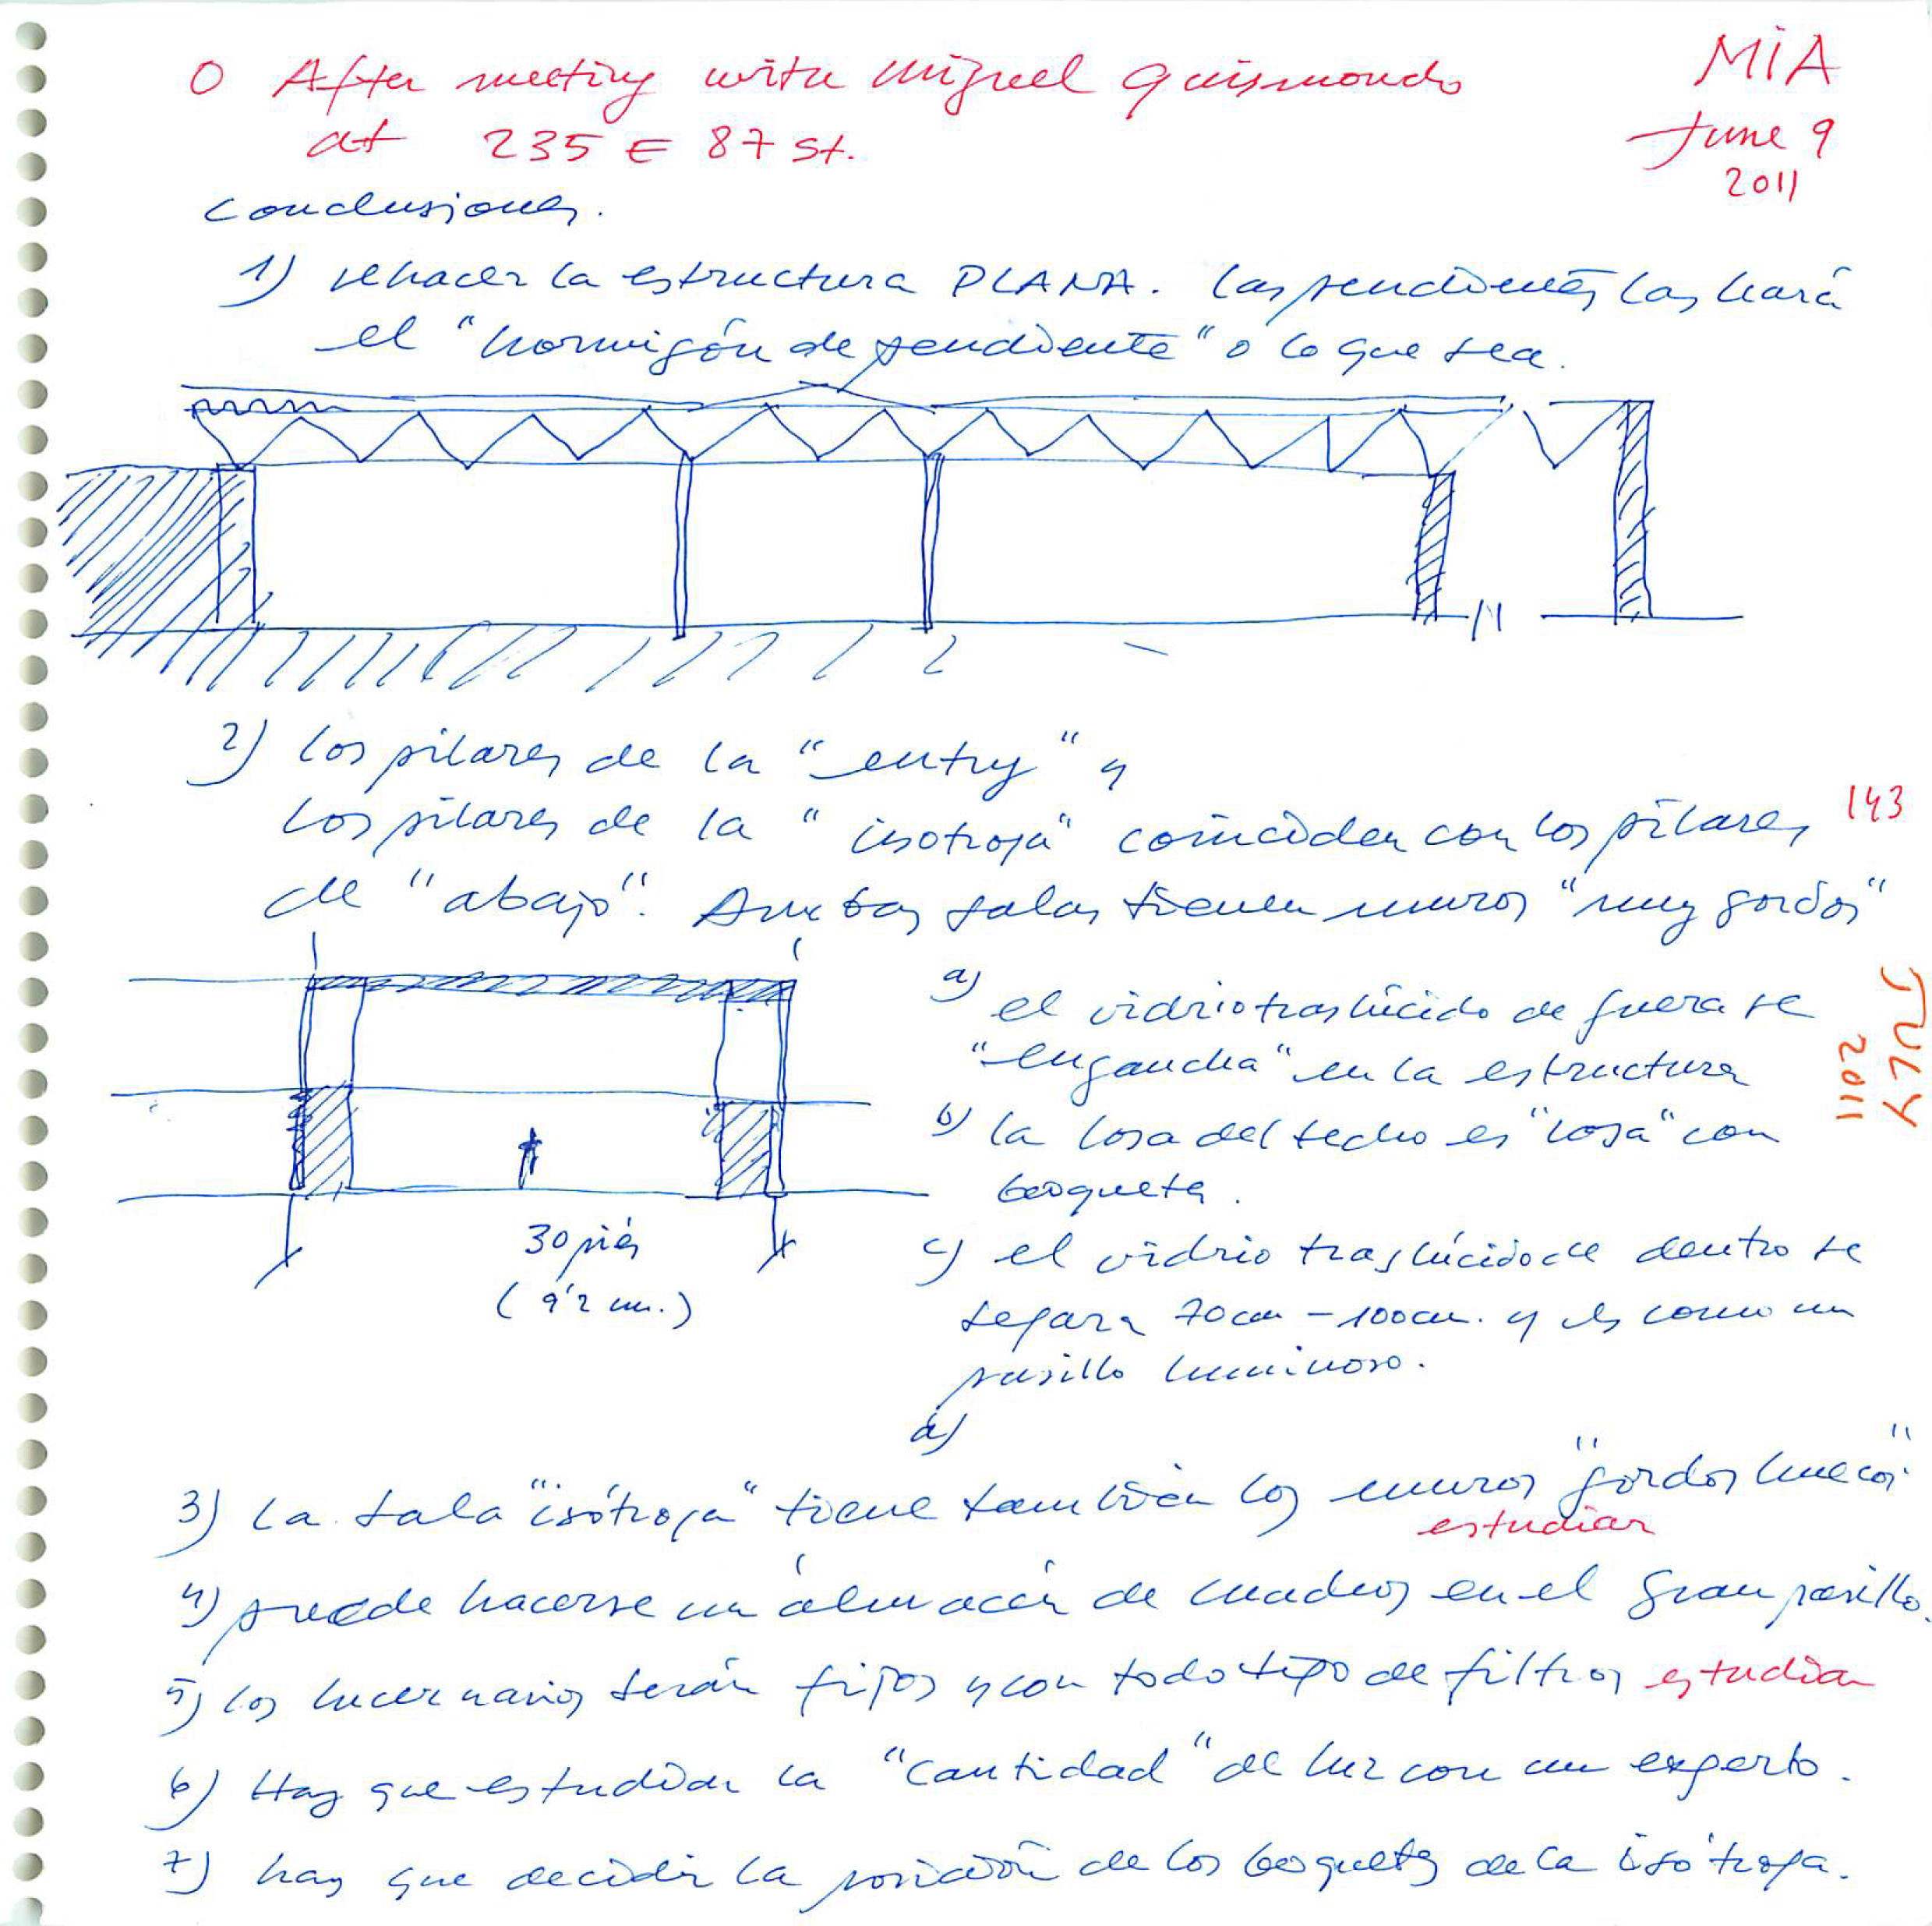 O After meeting with Miguel Quismondo
at 235 E 87 St.
MiA
June 9
2011
Conclusiones.
1) rehacer la estructura PLANA. las pendientes las hará
el "hormigón de pendiente" o lo que sea.
2) los pilares de la "entry" y
los pilares de la "isotropa" coinciden con los pilares
143
de "abajo". Ambas salas tienen muros "muy gordos"
30 piés
(9'2 m.)
a) el vidrio traslúcido de fuera se
"engancha" en la estructura
b) la losa del techo es "losa" con
boquetes.
c) el vidrio traslúcido de dentro se
separa 70cm - 100cm. y es como un
pasillo luminoso.
d)
JULY
2011
3) La sala "isótropa" tiene también los muros "gordos huecos"
estudiar
4) puede hacerse un almacén de cuadros en el gran pasillo.
5) los lucernarios serán fijos y con todo tipo de filtros estudiar
6) Hay que estudiar la "cantidad" de luz con un experto.
7) hay que decidir la posición de los boquetes de la isótropa.